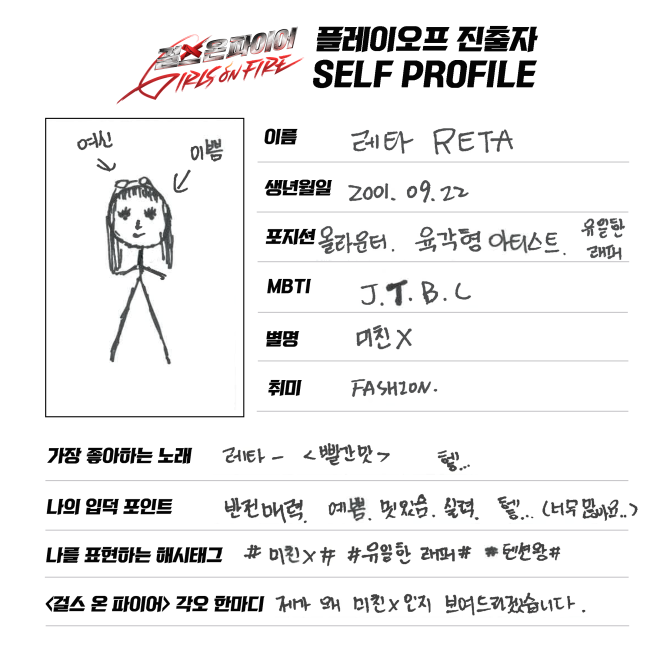 걸스온파이어 플레이오프 진출자
GIRLS ON FIRE SELF PROFILE
여신
이쁨
이름 레타 RETA
생년월일 2001. 09. 22
포지션 올라운터. 육각형 아티스트. 유일한 래퍼
MBTI J.T.B.C
별명 미친X
취미 FASHION.
가장 좋아하는 노래 레타 - <빨간맛> 헿...
나의 입덕 포인트 반전매력. 예쁨. 멋있음. 실력. 헿... (너무 많아요..>
나를 표현하는 해시태그 #미친X# #유일한 래퍼# #텐션왕#
<걸스 온 파이어> 각오 한마디 제가 왜 미친X인지 보여드리겠습니다.